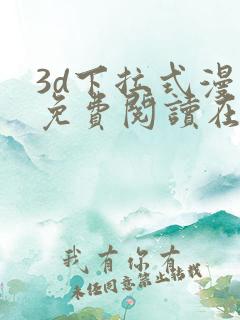 3d下拉式漫
免費閱讀在
我有你有
未经同意禁止转载